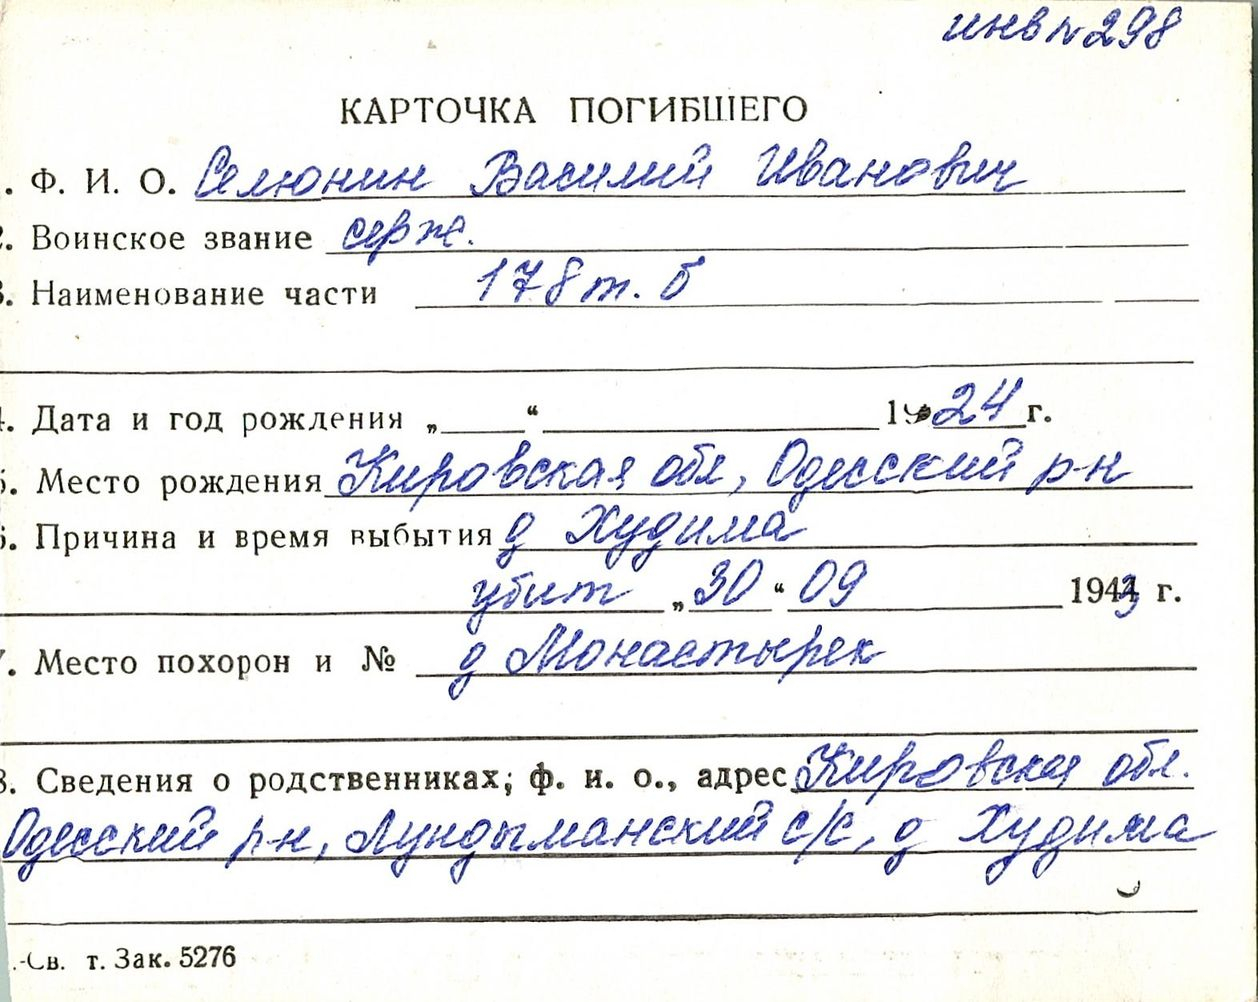 инв №298
КАРТОЧКА ПОГИБШЕГО
. Ф. И. О. Селюнин Василий Иванович
. Воинское звание серж.
. Наименование части 178 т. б
. Дата и год рождения „ “ 1924 г.
. Место рождения Кировская обл, Одесский р-н
. Причина и время выбытия д Худима
убит „30“ 09 1943 г.
. Место похорон и № д Монастырек
. Сведения о родственниках; ф. и. о., адрес Кировская обл.
Одесский р-н, Лундыманский с/с, д Худима
.-Св. т. Зак. 5276